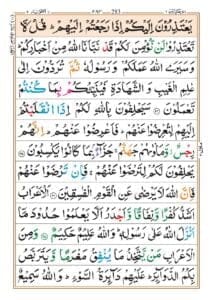 يَعْتَذِرُوْنَ اِلَيْكُمْ اِذَا رَجَعْتُمْ اِلَيْهِمْ ؕ قُلْ لَّا
تَعْتَذِرُوْا لَنْ نُّؤْمِنَ لَكُمْ قَدْ نَبَّاَنَا اللّٰهُ مِنْ اَخْبَارِكُمْ ؕ
وَسَيَرَى اللّٰهُ عَمَلَكُمْ وَرَسُوْلُهٗ ثُمَّ تُرَدُّوْنَ اِلٰى
عٰلِمِ الْغَيْبِ وَالشَّهَادَةِ فَيُنَبِّئُكُمْ بِمَا كُنْتُمْ
تَعْمَلُوْنَ ۝ سَيَحْلِفُوْنَ بِاللّٰهِ لَكُمْ اِذَا انْقَلَبْتُمْ
اِلَيْهِمْ لِتُعْرِضُوْا عَنْهُمْ ؕ فَاَعْرِضُوْا عَنْهُمْ ؕ اِنَّهُمْ
رِجْسٌ وَّمَاْوٰىهُمْ جَهَنَّمُ ۚ جَزَآءًۢ بِمَا كَانُوْا يَكْسِبُوْنَ ۝
يَحْلِفُوْنَ لَكُمْ لِتَرْضَوْا عَنْهُمْ ۚ فَاِنْ تَرْضَوْا عَنْهُمْ
فَاِنَّ اللّٰهَ لَا يَرْضٰى عَنِ الْقَوْمِ الْفٰسِقِيْنَ ۝ اَلْاَعْرَابُ
اَشَدُّ كُفْرًا وَّنِفَاقًا وَّاَجْدَرُ اَلَّا يَعْلَمُوْا حُدُوْدَ مَاۤ
اَنْزَلَ اللّٰهُ عَلٰى رَسُوْلِهٖ ؕ وَاللّٰهُ عَلِيْمٌ حَكِيْمٌ ۝ وَمِنَ
الْاَعْرَابِ مَنْ يَّتَّخِذُ مَا يُنْفِقُ مَغْرَمًا وَّيَتَرَبَّصُ
بِكُمُ الدَّوَآئِرَ ؕ عَلَيْهِمْ دَآئِرَةُ السَّوْءِ ؕ وَاللّٰهُ سَمِيْعٌ